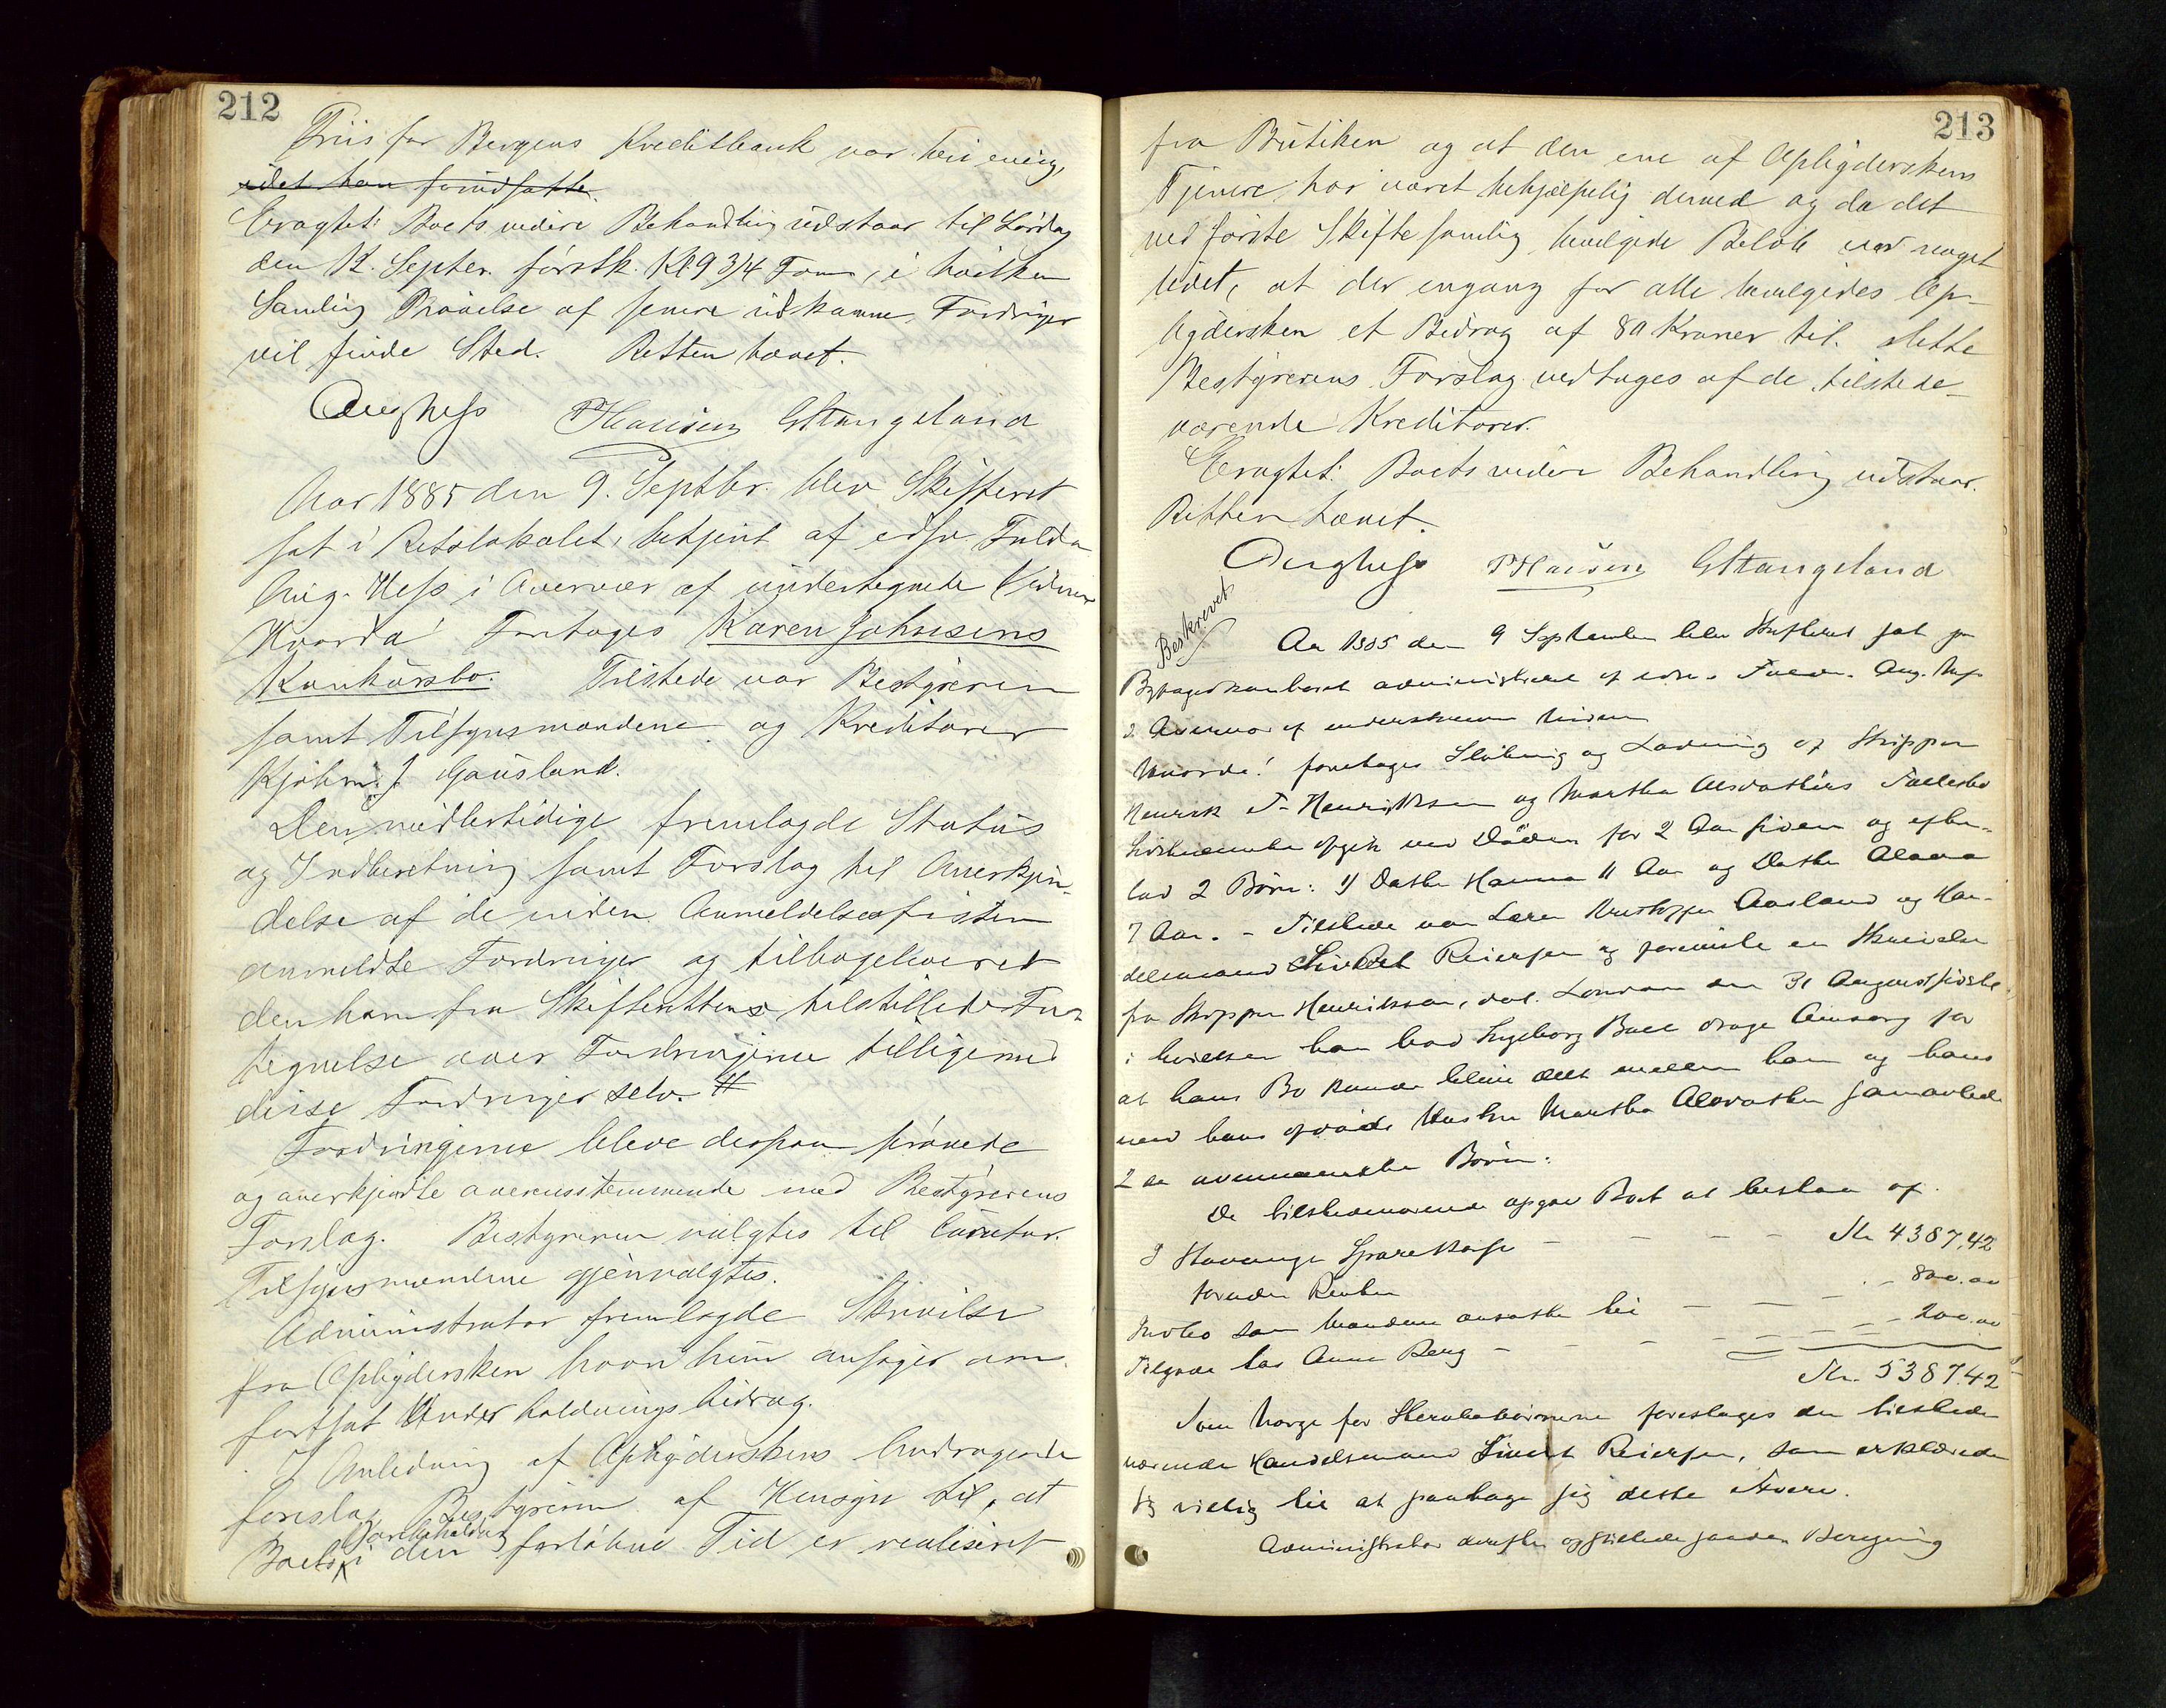 212
Friis for Bergens Kreditbank var heri enig,
idet han forudsatte
Eragtet: Boets videre Behandling udstaar til Lørdag
den 12. Septer. førstk. Kl 9 3/4 Form, i hvilken
Samling Prøvelse af senere indkomne Fordringer
vil finde Sted. Retten hævet.
Aug Hess PHansen GStangeland
Aar 1885 den 9. Septbr. blev Skifteret
sat i Retslokalet, betjent af edsv. Fuldm
Aug. Hess i Overvær af undertegnede Vidner
Hvorda! Foretoges Karen Johnsens
Konkursbo. Tilstede var Bestyreren
samt Tilsynsmændene og Kreditorer
Kjøbm. J. Gausland.
Den midlertidige fremlagde Status
og Indberetning samt Forslag til Anerkjen-
delse af de inden Anmeldelsesfristen
anmeldte Fordringer og tilbageleveret
den ham fra Skifterettens tilstillede For-
tegnelse over Fordringerne tilligemed
disse Fordringer selv. #
Fordringerne bleve derpaa prøvede
og anerkjendte overensstemmende med Bestyrerens
Forslag. Bestyreren valgtes til Curator.
Tilsynsmændene gjenvalgtes.
Administrator fremlagde Skrivelse
fra Opbydersken hvori hun ansøger om
fortsat Underholdningsbidrag.
I Anledning af Opbyderskens Andragende
foreslog Bestyreren af Hensyn til, at
Varebeholdng
Boets i den forløbne Tid er realiseret
213
fra Butiken og at den ene af Opbyderskens
Tjenere har været behjælpelig dermed og da det
ved første Skiftesamling bevilgede Beløb var meget
lidet, at der engang for alle bevilgedes Op-
bydersken et Bidrag af 80 Kroner til. dette
Bestyrerens Forslag vedtoges af de tilstede-
værende Kreditorer.
Eragtet: Boets videre Behandling udstaar.
Retten hævet.
Aug Hess PHansen GStangeland
Beskrevet
Aar 1885 den 9 September blev Skifteret sat paa
Byfogedkontoret administreret af edsv. Fuldm. Aug. Hess
i Overvær af underskrevne Vidner
Hvorda! foretoges Slutning og Lodning af Skipper
Henrik T. Henriksen og Martha Alvdatters Fællesbo
Sidstnævnte afgik ved Døden for 2 Aar siden og efter-
lod 2 Børn: 1) Datter Hanna 11 Aar og Datter Alava
7 Aar. - Tilstede var Lærer Kristoffer Aasland og Han-
delsmand Sivert Reiersen og foreviste en Skrivelse
fra Skipper Henriksen, dat. London den 31 August sidstl.,
i hvilken han bad Ingeborg Boll drage Omsorg for
at hans Bo kunde blive delt mellem ham og hans
med hans afdøde Hustru Martha Alvdatter sammavlede
2de ovennævnte Børn.
De tilstedeværende opgav Boet at bestaa af
I Stavanger Sparekasse - - - - Kr 4387,42
foruden Renter
Indbo som Manden ansatte til - - - - 800.00
Tilgode hos Anne Berg - - - - 200.00
Kr. 5387.42
Som Værge for Stervbobørnene foresloges den tilstede
værende Handelsmand Sivert Reiersen, som erklærede
sig villig til at paatage sig dette Hverv.
Administrator derefter opstillede saadan Beregning